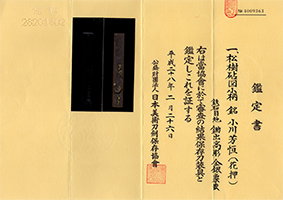 鑑定書
一 松樹砧図小柄 銘 小川芳恒（花押）
鉄石目地 鋤出高彫 金銀象嵌
右は當協會に於て審査の結果保存刀装具と
鑑定しこれを証する
平成二十八年 二月二十六日
公益財団法人 日本美術刀剣保存協会